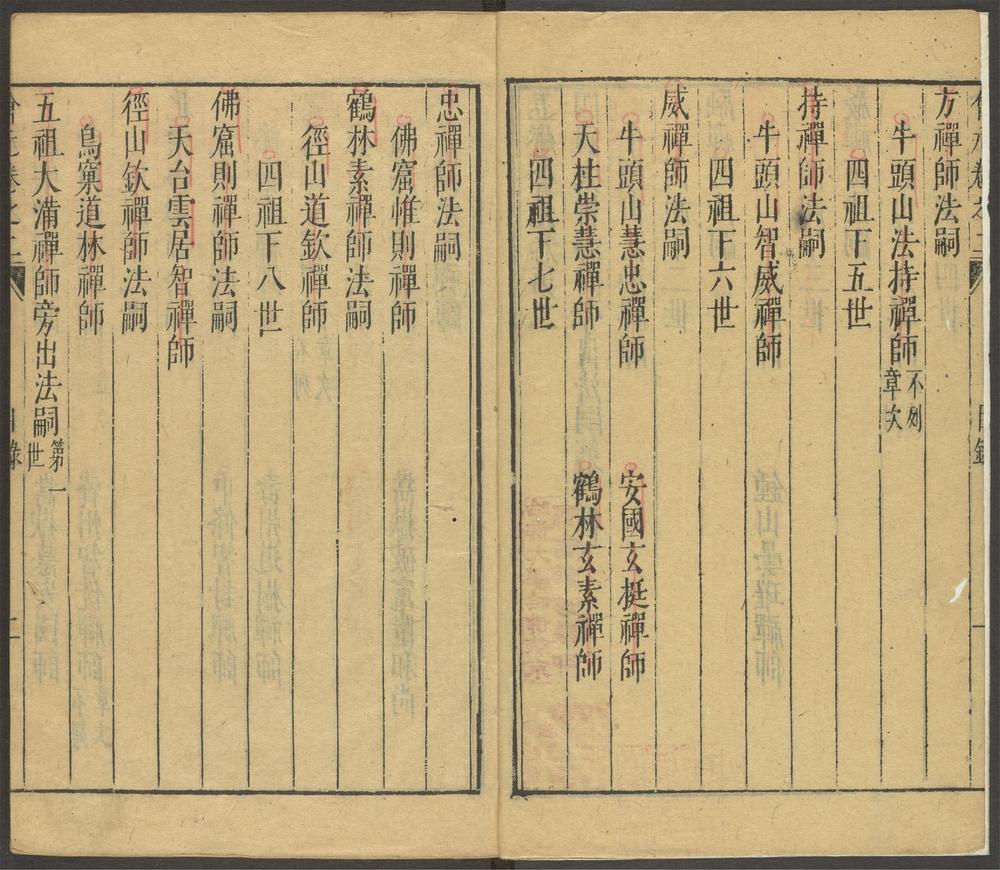 方禪師法嗣
牛頭山法持禪師不列章次
四祖下五世
持禪師法嗣
牛頭山智威禪師
四祖下六世
威禪師法嗣
牛頭山慧忠禪師 安國玄挺禪師
天柱崇慧禪師 鶴林玄素禪師
四祖下七世
忠禪師法嗣
佛窟惟則禪師
鶴林素禪師法嗣
徑山道欽禪師
四祖下八世
佛窟則禪師法嗣
天台雲居智禪師
徑山欽禪師法嗣
鳥窠道林禪師
五祖大滿禪師旁出法嗣第一世
會元卷之二 目錄 二